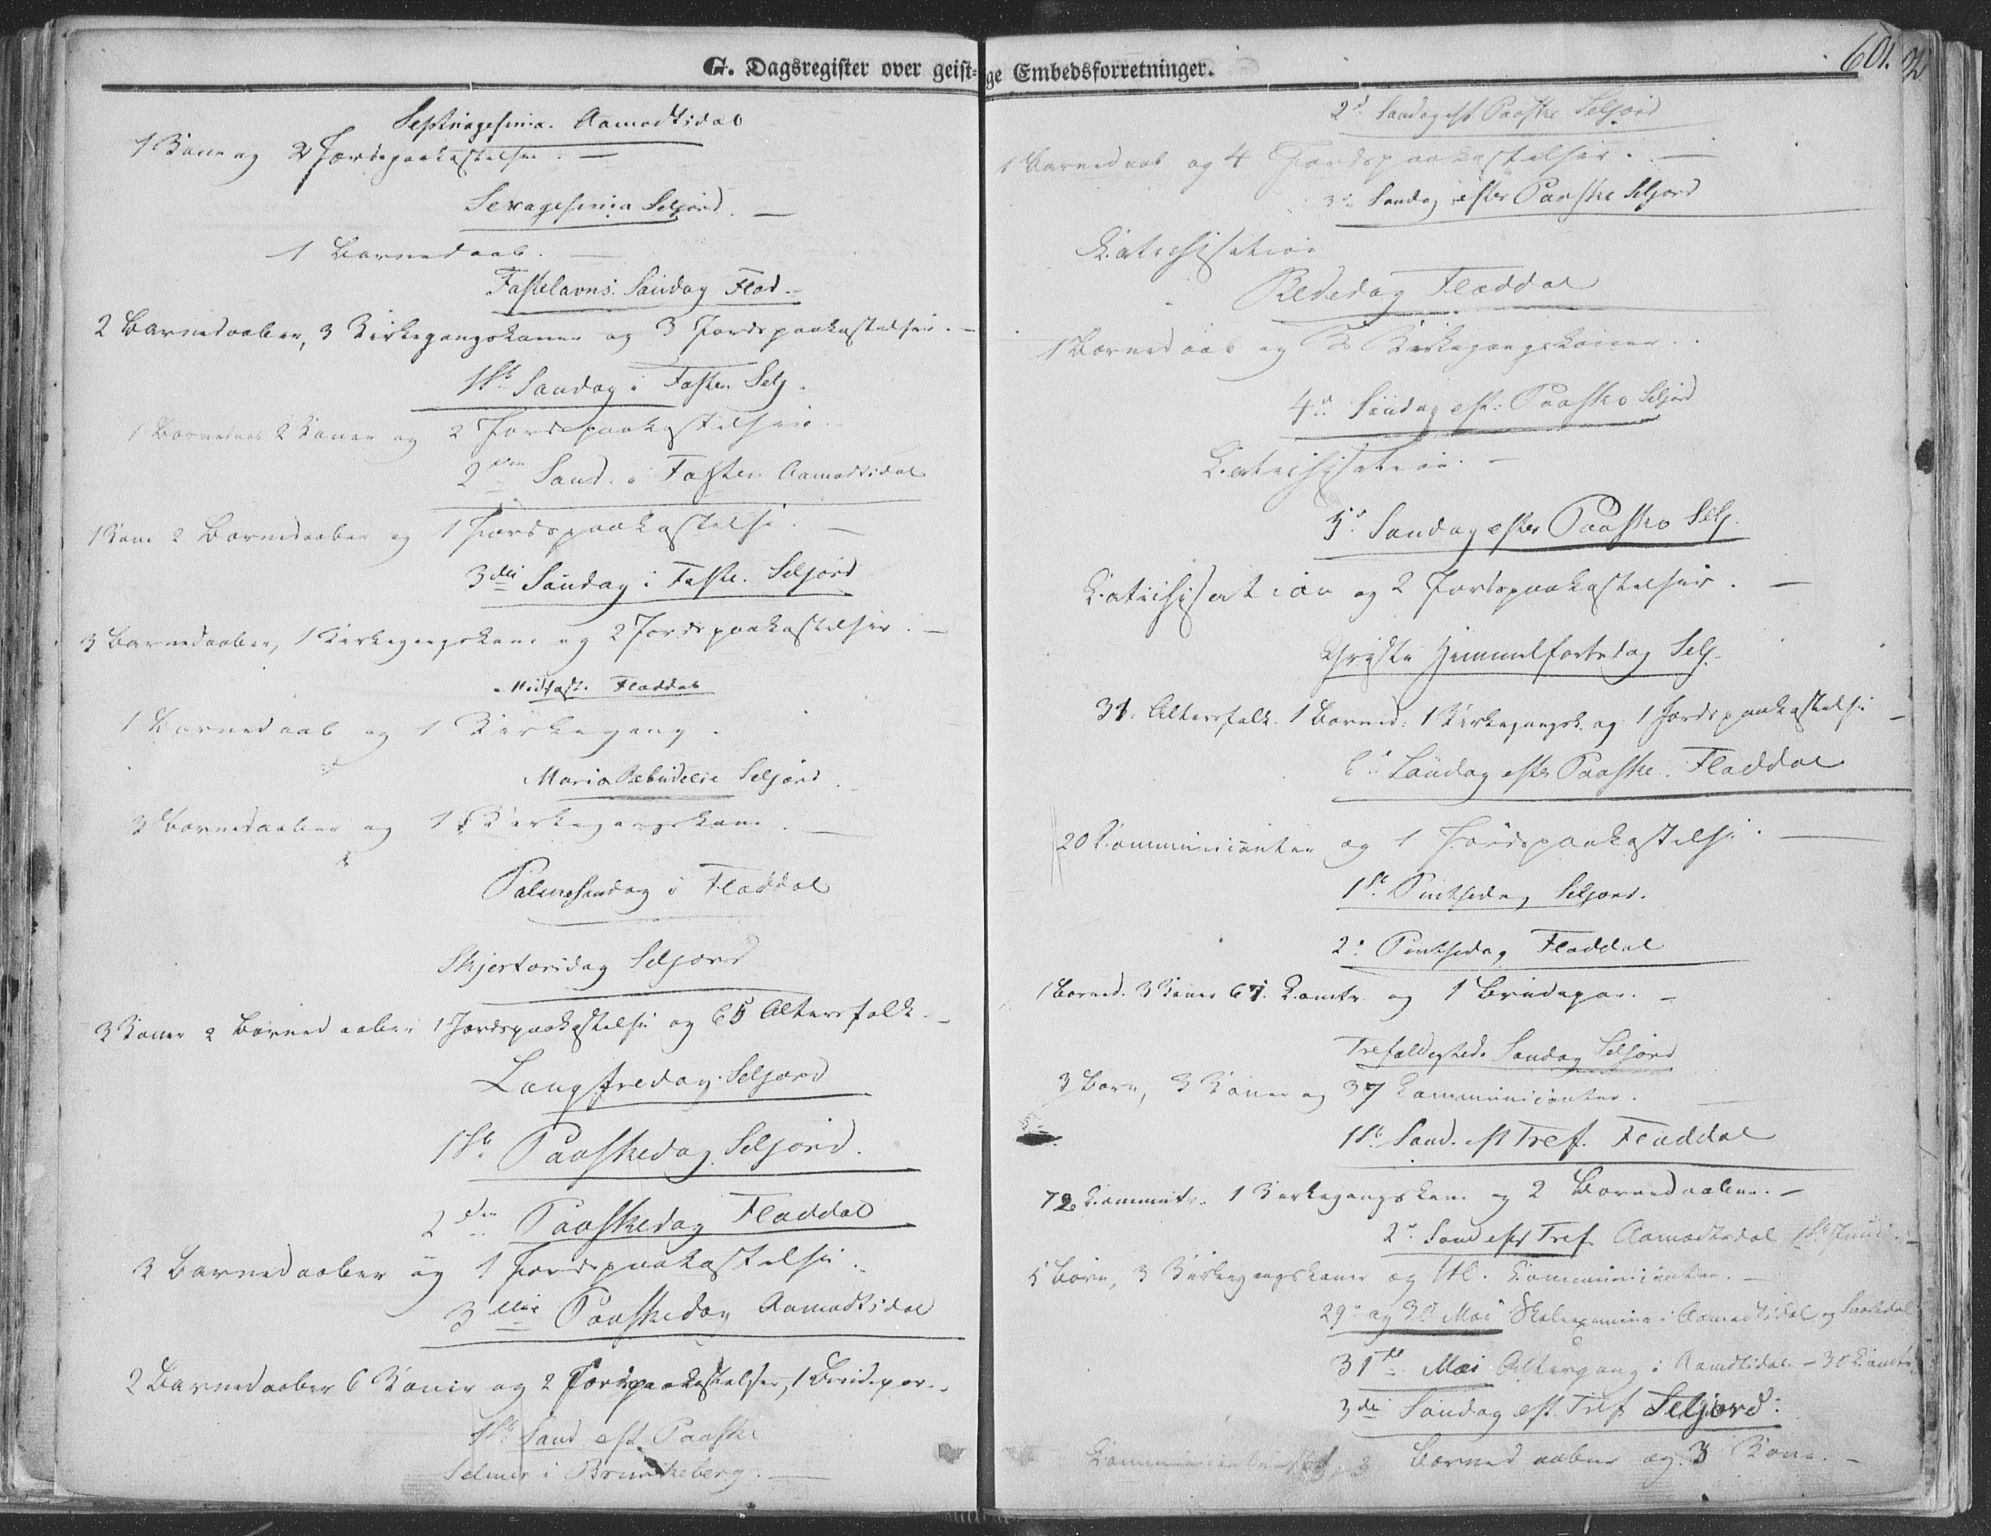 G. Dagsregister over geist=
Septuagesima. Aamodtsdal
1 Kone og 2 Jordspaakastelser. —
Sexagesima Seljord. —
1 Barnedaab. —
Fastelavns Søndag Flad.
2 Barnedaaber, 3 Kirkegangskoner og 3 Jordspaakastelser. —
1ste Søndag i Fasten Selj.
1 Barnedaab 2 Koner og 2 Jordspaakastelser.
2den Sønd. i Fasten Aamodtsdal
1 Kone 2 Barnedaaber og 1 Jordspaakastelse. —
3die Søndag i Faste. Seljord
3 Barnedaaber, 1 Kirkegangskone og 2 Jordspaakastelser. —
Midfast. Fladdal
1 Barnedaab og 1 Kirkegang.
Maria Bebudelse Seljord.
3 Barnedaaber og 1 Kirkegangskone. —
Palmesøndag i Fladdal
Skjertorsdag Seljord
3 Koner 2 Barnedaaber 1 Jordspaakastelse og 65 Altersfolk. —
Langfredag. Seljord
1ste Paaskedag Seljord.
2den Paaskedag Fladdal
3 Barnedaaber og 1 Jordspaakastelse.
3die Paaskedag Aamodtsdal
2 Barnedaaber 6 Koner og 2 Jordspaakastelser, 1 Brudepar.
1ste Sønd eft. Paaske
i Brunkeberg. —
ge Embedsforretninger.
601.
2d. Søndag eft Paaske Seljord
1 Barnedaab og 4 Jordspaakastelser. —
3d. Søndag efter Paaske Seljord
Catechisation
Bededag Fladdal
1 Barnedaab og 2 Kirkegangskoner.
4d. Søndag eft: Paaske Seljord
Catechisation. —
5d. Søndag efter Paaske Selj.
Catechisation og 2 Jordspaakastelser. —
Christi Himmelfartsdag Selj.
31. Altersfolk. 1 Barned: 1 Kirkegangsk. og 1 Jordspaakastelse —
6d. Søndag efter Paaske. Fladdal
20 Communicanter og 1 Jordspaakastelse. —
1st. Pintsedag Seljord.
2d. Pintsedag Fladdal
1 Barned. 3 Koner 67. Comtr. og 1 Brudepar. —
Trefoldigheds Søndag Seljord
3 Børn, 3 Koner og 37 Communicanter. —
1ste Sønd. eft Tref. Fladdal
72 Commtr. 1 Kirkegangskone og 2 Barnedaaber. —
2d. Sønd efter Tref. Aamodtsdal
5 Børn, 3 Kirkegangskoner og Communicanter. —
29d. og 30 Mai Skoleexamina i Aamodtsdal og
31te Mai Altergang i Aamdtsdal — 30 Comtr.
3die Søndag eft. Tref Seljord:
Communicanter 3 Barnedaaber og 3 Kone. —